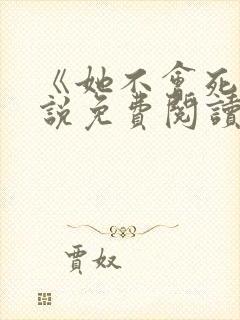 《她不會死
說免費閱讀
賈奴